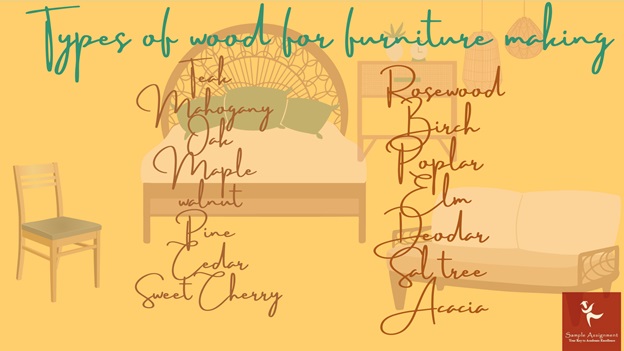 Types of wood for furniture making
Teak
Mahogany
Oak
Maple
walnut
Pine
Cedar
Sweet Cherry
Rosewood
Birch
Poplar
Elm
Deodar
Sal tree
Acacia
Sample Assignment
Your Key to Academic Excellence